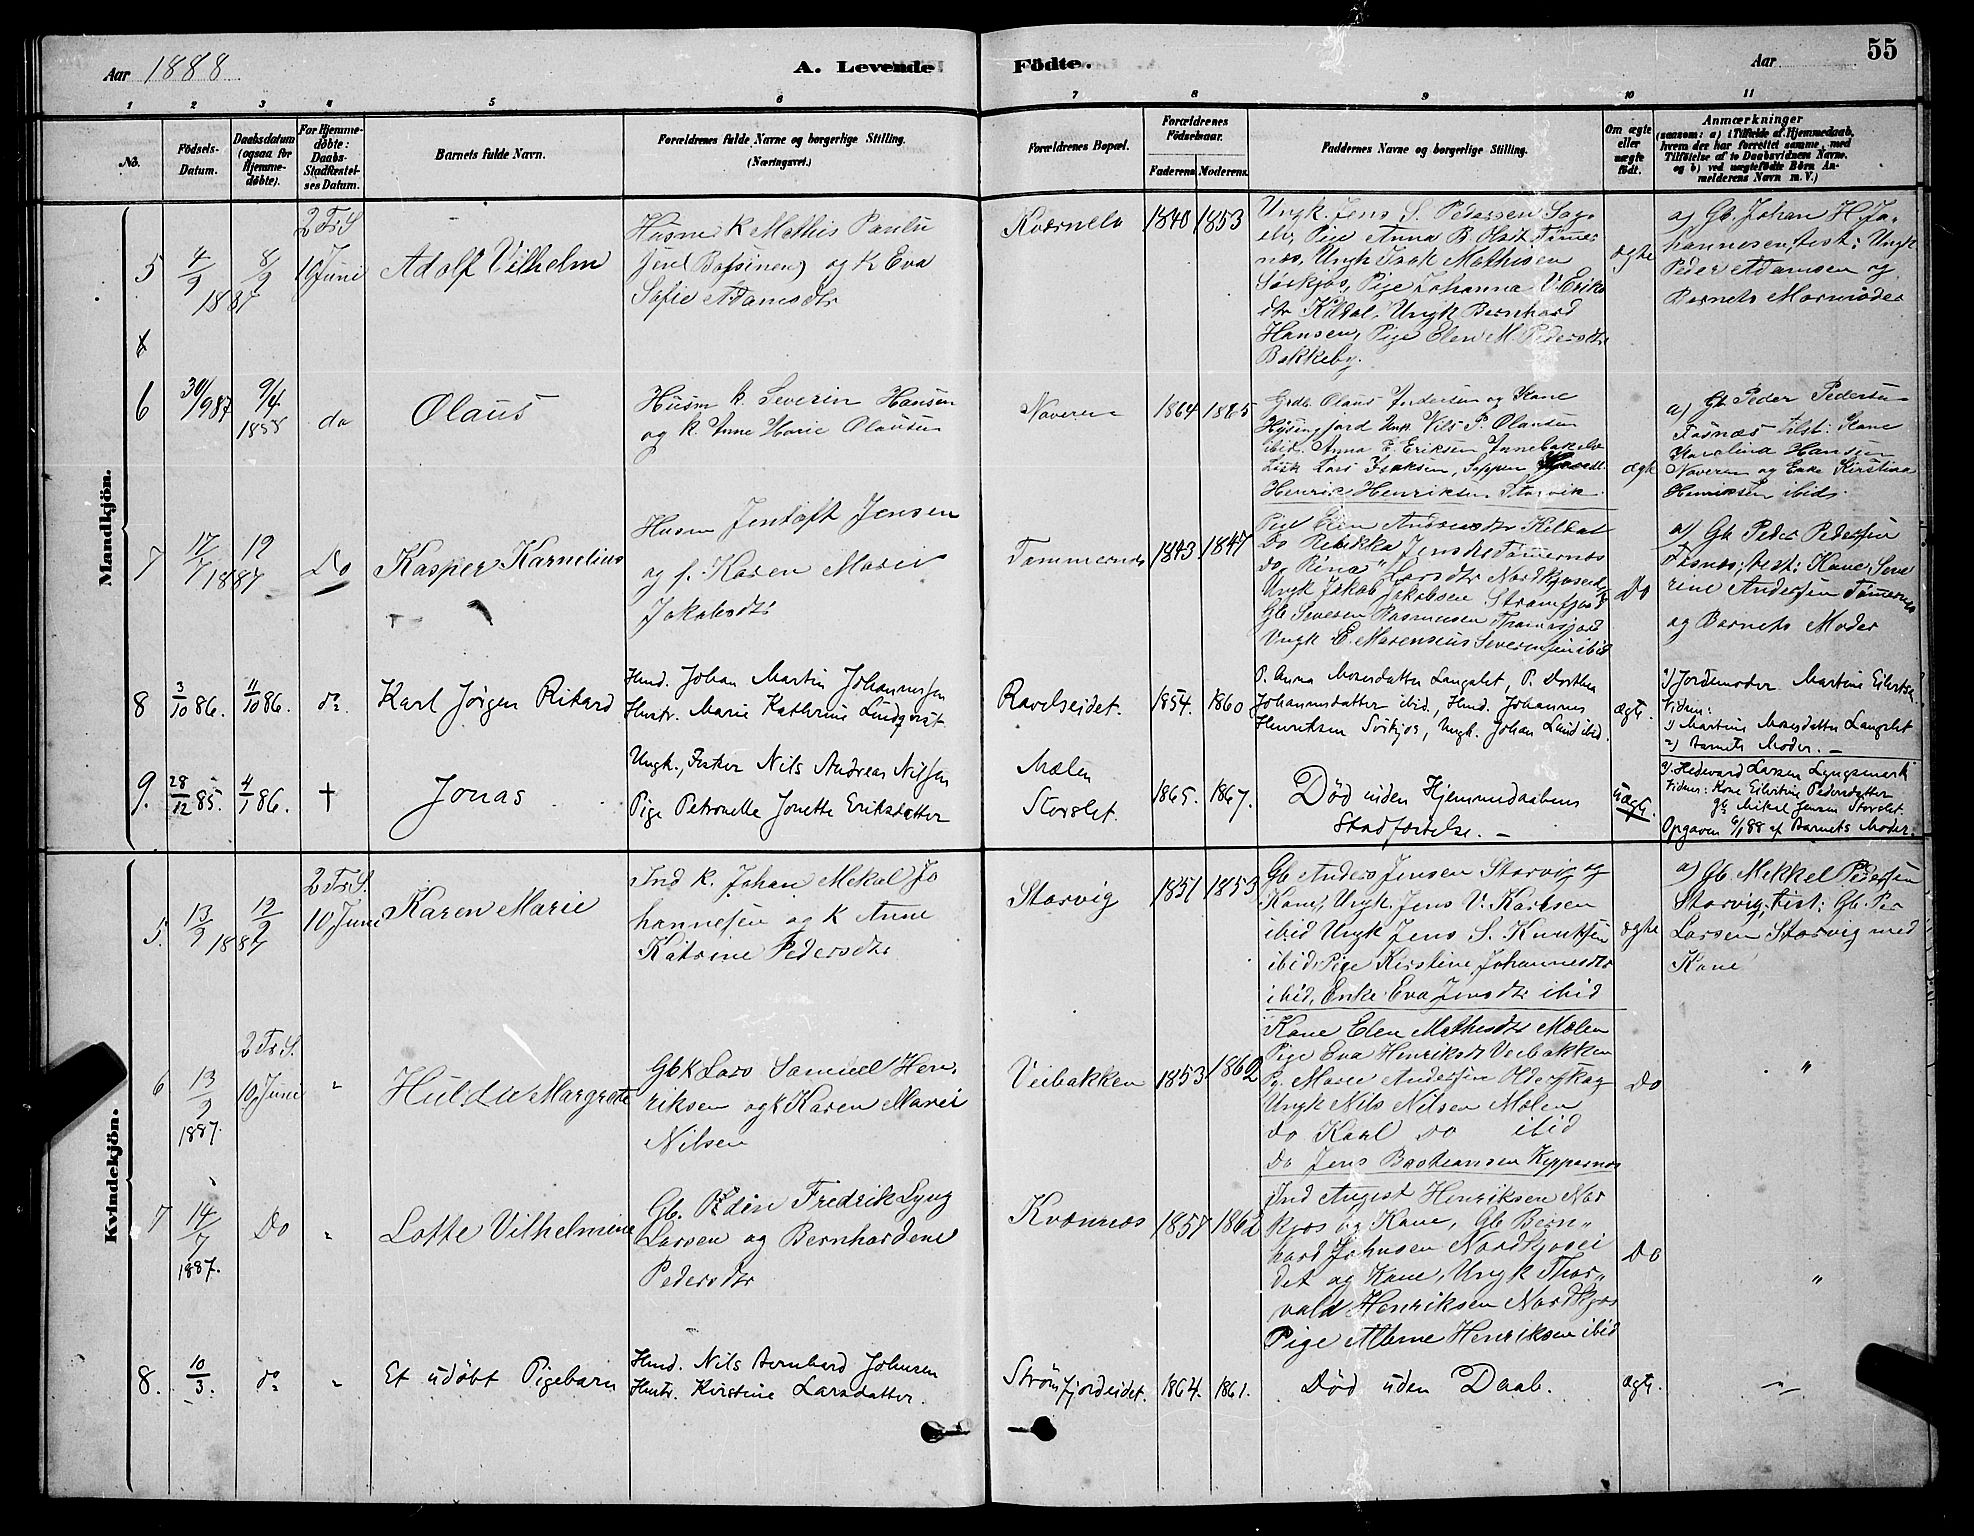 Aar 1888
A. Levende Fødte.
Aar
55
1 2 3 4 5 6 7 8 9 10 11
No.
Fødsels-Datum.
Daabsdatum (ogsaa for Hjemme-døbte).
For Hjemme-døbte: Daabs-Stadfæstel-ses Datum.
Barnets fulde Navn.
Forældrenes fulde Navne og borgerlige Stilling.
(Næringsvei.)
Forældrenes Bopæl.
Forældrenes Fødselsaar.
Faderens Moderens
Faddernes Navne og borgerlige Stilling.
Om ægte eller uægte født.
Anmærkninger
(saasom: a) i Tilfælde af Hjemmedaab, hvem der har forrettet samme, med Tilføielse af to Daabsvidners Navne, og b) ved uægtefødte Børn An-melderens Navn m. V.)
Mandkjön.
5 4/9 1887 8/9 2 Tr S 10 Juni Adolf Vilhelm
Husm k Mathis Paulu
og K Eva
Sofie Adamsdtr
Kværnelv 1840 1853
Ungk. Jens S. Pedersen Sag-
elv, Pige Anna B. Olsdt Tømer
næs, Ungk Isak Mathisen
Sørkjos, Pige Johanna V. Eriks
dtr Kildal, Ungk Bernhard
Hansen, Pige Elen M. Pedersdtr
Bakkeby.
ægte
a) Gb. Johan H. Jo-
hannesen, test: Ungk
Peder Adamsen og
Barnets Mormoder
6 30/9 87 9/4 do Olaus
Husm k. Severin Hansen
og k. Anne Marie Olausen
Naveren 1864
Grdb. Olaus Andersen og Kone
Ungk. Nils P. Olausen
ibid. Anna E. Eriksen
Lars Isaksen,
Henrik Henriksen Storvik.
ægte
a) Gb Peder Pedersen
Tosnæs test: Kone
Karolina Hansen
Naveren og Enke Kirstina
Henriksen ibid.
7 17/7 1887 19 Do Kasper Kornelius
Husm Jentoft Jensen
og f. Karen Marie
Jakobsdtr
Tømmernes 1843 1847
Pige Elen Andreasdtr Kildal
Do Rebikka Jensdtr Tømernæs
do, Rina Larsdtr Nordkjoseid
Ungk Jakob Jakobsen Strømfjord
Gb Severin Rasmussen
Ungk E. Marensius Severinsen ibid
Do
a) Gb Peder Pedersen
Tosnæs; test: Kone Seve
rine Andersen Tømernes
og Barnets Moder
8 3/10 86. 11/10 86. do. Karl Jørgen Rikard
Husm. Johan Martin Johannessen
Hustr. Marie Kathrine Lindqvist.
Ravelseidet. 1854. 1860
P. Anna Mosesdatter Langslet, P. Dorthea
Johannesdatter ibid., Husm. Johannes
Henriksen Sørkjos, Ungk. Johan Lund ibid.
ægte.
a) Jordemoder Martine Eilertsen
Vidner:
1) Martine Mosesdatter Langslet
2) Barnets Moder. —
9. 28/12 85. 4/1 86. † Jonas
Ungk., Fisker Nils Andreas Nilsen
Pige Petronelle Jonette Eriksdatter
Mælen
Storslet.
1865. 1867.
Død uden Hjemmedaabens
Stadfæstelse. —
uægte.
a) Hedevard Larsen Lyngsmark
Vidner: Kone Eilertine Pedersdatter
Gb. Mikal Jensen Storslet.
Opgaven 6/1 88 af Barnets Moder.
Kvindekjön.
5. 13/9 1887 19/9 2 Tr S. 10 Juni Karen Marie
Ind k. Johan Mekal Jo
hannesen og K Anne
Katrine Pedersdtr
Storvig 1851 1853
Gb Anders Jensen Storvig og
Kone, Ungk. Jens V. Karlsen
ibid Ungk Jens S. Knutsen
ibid, Pige Kirstine Johannesdtr
ibid, Enke Eva Jensdtr ibid
ægte
a) Gb. Mekkel Pedersen
Storvig, tist: Gb. Per
Larsen Storvig med
Kone
6 13/9 1887. 2 Tr S. 10 Juni " Hulda Margrete
Gb K Lars Samuel Hen-
riksen og K Karen Marie
Nilsen
Veibakken 1853 1862
Kone Elen Mathisdtr Mælen
Pige Eva Henriksdt Veibakken
Pg. Marie Andersen Olderskog
Ungk Nils Nilsen Mælen
do Karl do ibid
Do Jens Bastiansen Kippernes
Do "
7 14/7 1887. Do " Lotte Vilhelmine
Gb. Odin Fredrik Lyng
Larsen og Bernhardene
Pedersdtr
Kvænnæs 1857 1862
Ind August Henriksen Nor
kjos og Kone, Gb Bern-
hard Johnsen Nordkjosei
det og Kone, Ungk Thor-
vald Henriksen Nordkjos
Pige Henriksen ibid
Do "
8. 10/3. do. " Et udøbt Pigebarn
Husm. Nils Bernhard Johnsen
Hustr. Kirstine Larsdatter.
Strømfjordeidet. 1864. 1861.
Død uden Daab.
ægte. "